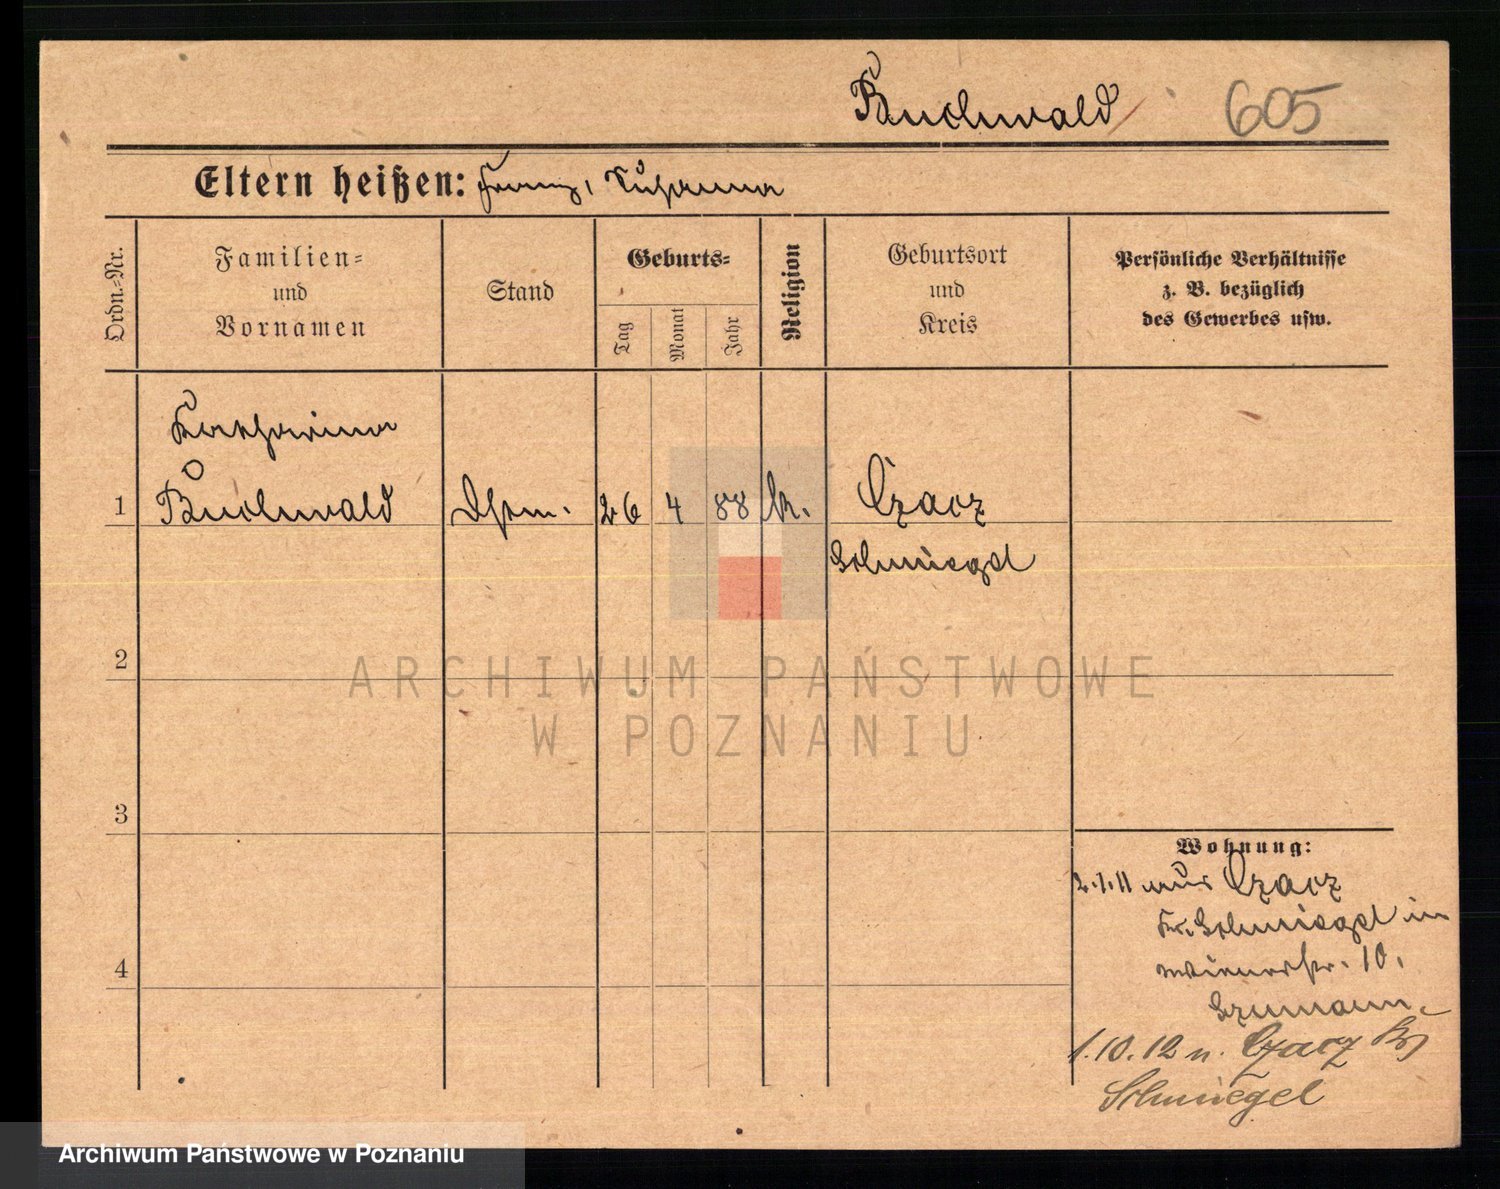 Buchwald 605
Eltern heißen: Franz, Susanna
Ordn.=Nr.
Familien=
und
Vornamen
Stand
Geburts=
Tag
Monat
Jahr
Religion
Geburtsort
und
Kreis
Persönliche Verhältnisse
z. B. bezüglich
des Gewerbes usw.
Katharina
1 Buchwald 26 4 88 k. Czacz
Schmiegel
2
3
4
Wohnung:
2.1.11 aus Czacz
Kr. Schmiegel in
10.
1.10.12 n. Czacz Kr
Schmiegel
ARCHIWUM PAŃSTWOWE
W POZNANIU
Archiwum Państwowe w Poznaniu